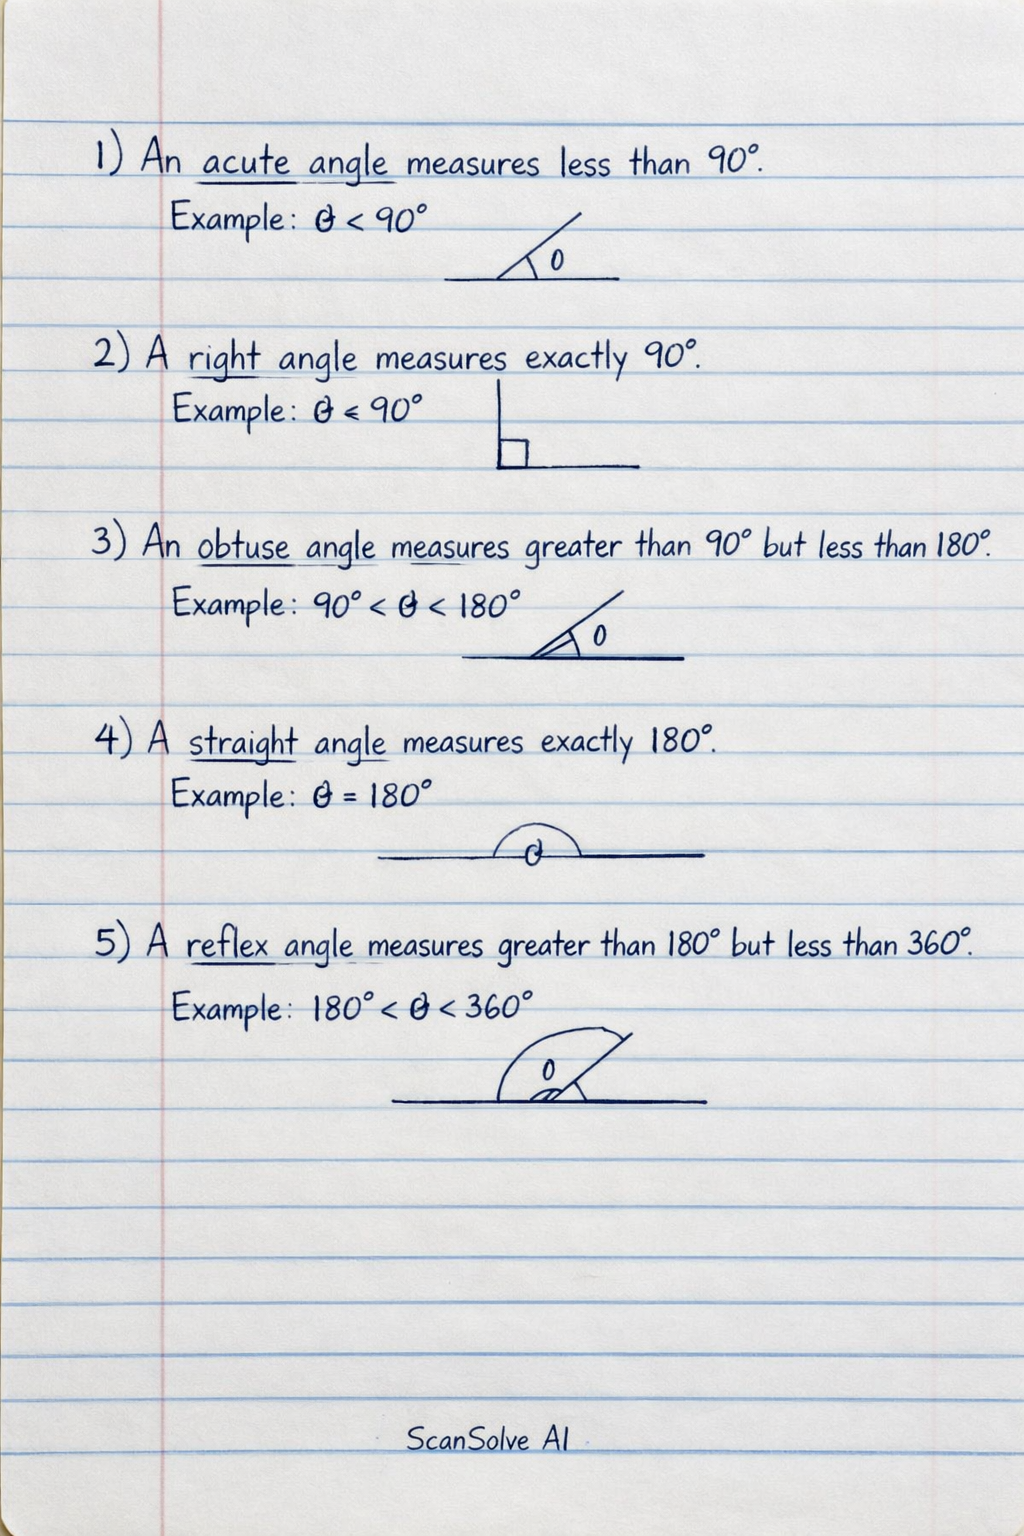 1) An acute angle measures less than 90°.
Example: θ < 90°
θ
2) A right angle measures exactly 90°.
Example: θ < 90°
3) An obtuse angle measures greater than 90° but less than 180°.
Example: 90° < θ < 180°
θ
4) A straight angle measures exactly 180°.
Example: θ = 180°
θ
5) A reflex angle measures greater than 180° but less than 360°.
Example: 180° < θ < 360°
θ
ScanSolve AI